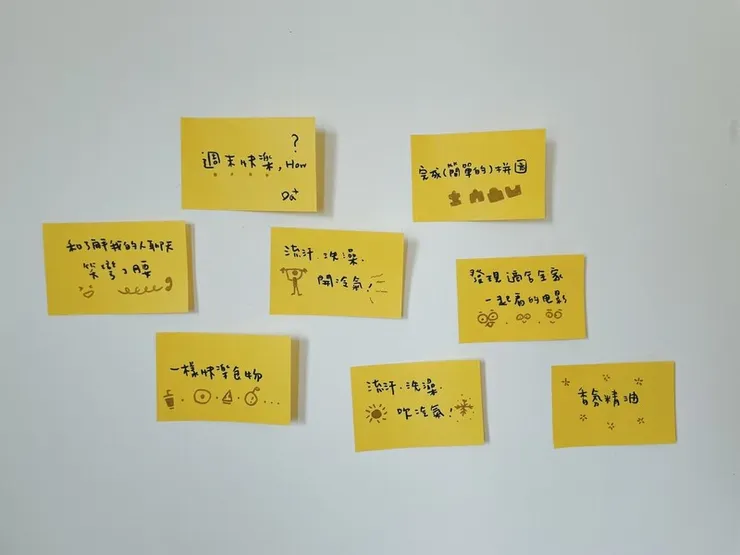 ?
週末快樂, How
Da+
完成(簡單的)拼圖
和了解我的人聊天
笑彎了腰
流汗.洗澡.
開冷氣!
發現適合全家
一起看的电影
一樣快樂食物
流汗.洗澡.
吹冷氣!
香氛精油